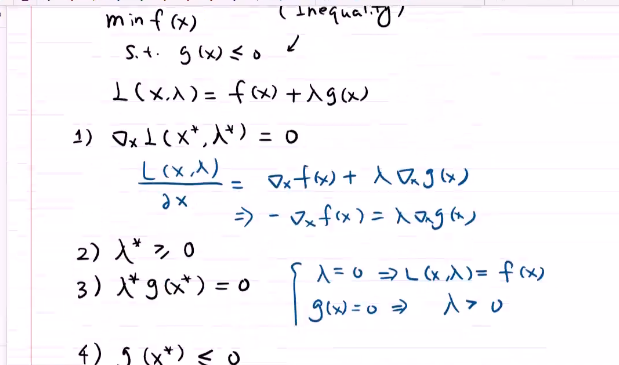 min f(x) (Inequality)
s.t. g(x) ≤ 0
L(x,λ) = f(x) + λg(x)
1) ∇xL(x*,λ*) = 0
L(x,λ)/∂x = ∇xf(x) + λ∇xg(x)
⇒ -∇xf(x) = λ∇xg(x)
2) λ* ≥ 0
3) λ*g(x*) = 0
{ λ=0 ⇒ L(x,λ) = f(x)
g(x)=0 ⇒ λ > 0
4) g(x*) ≤ 0